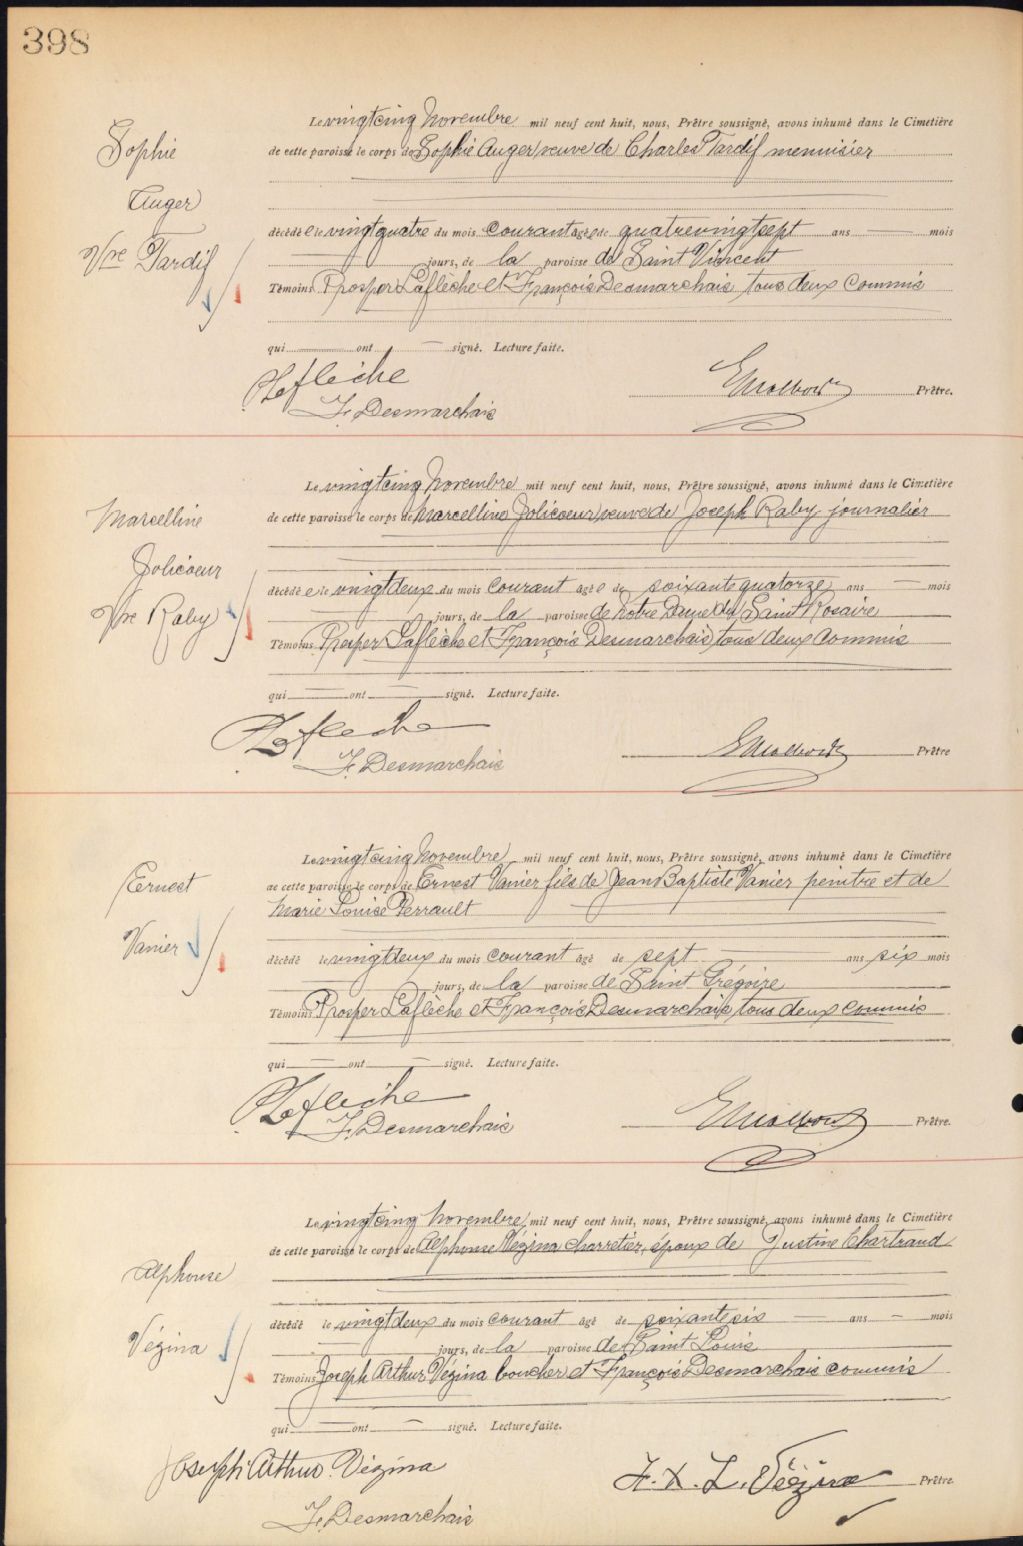 398
Sophie
Auger
Vve Tardif
Le vingtcinq Novembre mil neuf cent huit, nous, Prêtre soussigné, avons inhumé dans le Cimetière
de cette paroisse le corps de Sophie Auger veuve de Charles Tardif menuisier
décédée le vingtquatre du mois courant agée de quatrevingtsept ans — mois
— jours, de la paroisse de Saint Vincent
Témoins Prosper Laflèche et François Desmarchais tous deux commis
qui — ont — signé. Lecture faite.
PLaflèche
F. Desmarchais
Prêtre.
Marcelline
Jolicoeur
Vve Raby
Le vingtcinq Novembre mil neuf cent huit, nous, Prêtre soussigné, avons inhumé dans le Cimetière
de cette paroisse le corps de Marcelline Jolicoeur veuve de Joseph Raby journalier
décédée le vingtdeux du mois courant agée de soixantequatorze ans — mois
— jours, de la paroisse de Notre Dame du Saint Rosaire
Témoins Prosper Laflèche et François Desmarchais tous deux commis
qui — ont — signé. Lecture faite.
PLaflèche
F. Desmarchais
Prêtre
Ernest
Vanier
Le vingtcinq Novembre mil neuf cent huit, nous, Prêtre soussigné, avons inhumé dans le Cimetière
de cette paroisse le corps de Ernest Vanier fils de Jean Baptiste Vanier peintre et de
Marie Louise Perrault
décédé le vingtdeux du mois courant âgé de sept — ans six mois
— jours, de la paroisse de Saint Grégoire
Témoins Prosper Laflèche et François Desmarchais tous deux commis
qui — ont — signé. Lecture faite.
PLaflèche
F. Desmarchais
Prêtre.
Alphonse
Vézina
Le vingtcinq Novembre mil neuf cent huit, nous, Prêtre soussigné, avons inhumé dans le Cimetière
de cette paroisse le corps de Alphonse Vézina charretier, époux de Justine Chartrand
décédé le vingtdeux du mois courant âgé de soixantesix — ans — mois
— jours, de la paroisse de Saint Louis
Témoins Joseph Arthur Vézina boucher et François Desmarchais commis
qui — ont — signé. Lecture faite.
Joseph Arthur Vézina
F. X. L. Vézina Prêtre.
F. Desmarchais